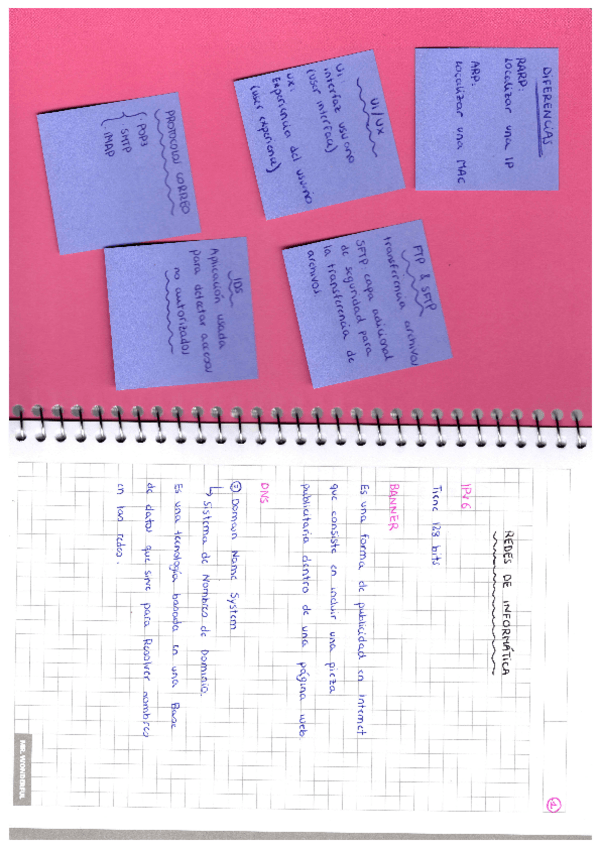 DIFERENCIAS
RARP:
Localizar una IP
ARP:
Localizar una MAC
UI/UX
UI
interfaz usuario
(user interface)
UX:
Experiencia del usuario
(user experience)
PROTOCOLOS CORREO
POP3
SMTP
IMAP
FTP & SFTP
transferencia archivos
SFTP capa adicional
de seguridad para
la transferencia de
archivos
IDS
Aplicación usada
para detectar accesos
no autorizados
1
REDES DE INFORMÁTICA
IPv6
Tiene 128 bits
BANNER
Es una forma de publicidad en Internet
que consiste en incluir una pieza
publicitaria dentro de una página web.
DNS
(=) Domain Name System
↳ Sistema de Nombres de Dominio.
Es una tecnología basada en una Base
de datos que sirve para Resolver nombres
en las redes.
MR. WONDERFUL